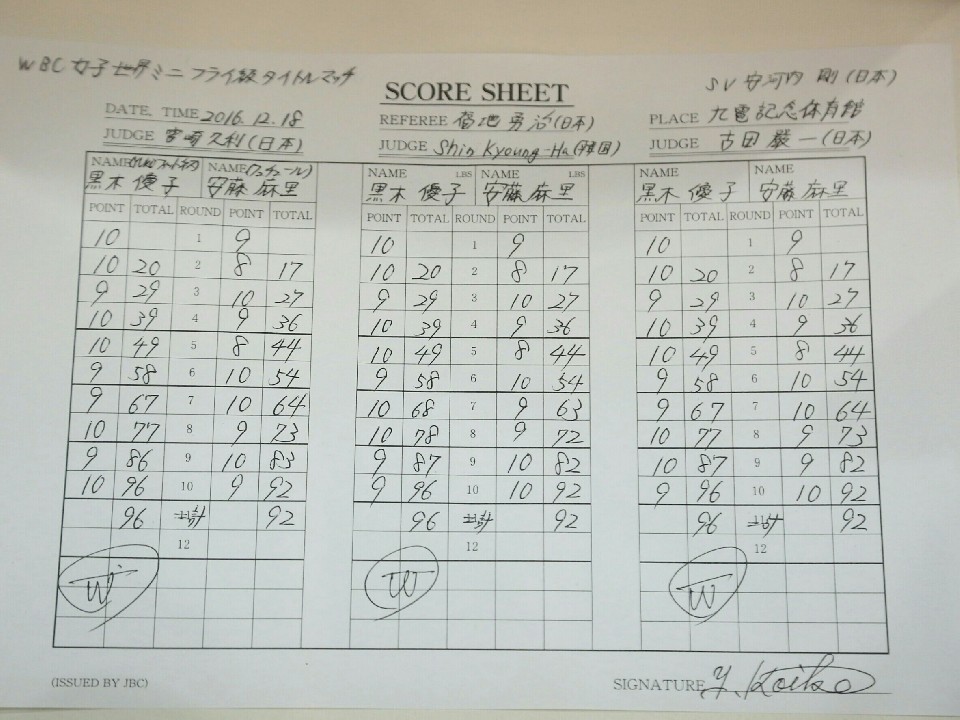 WBC 女子世界ミニフライ級タイトルマッチ
SV 安河内 剛(日本)
SCORE SHEET
DATE, TIME 2016.12.18
REFEREE 福地勇治(日本)
PLACE 九電記念体育館
JUDGE 宮崎久利(日本)
JUDGE Shin Kyoung-Ha(韓国)
JUDGE 古田 厳一(日本)
NAME NAME NAME LBS NAME LBS NAME NAME
黒木 優子 安藤 麻里 黒木 優子 安藤 麻里 黒木 優子 安藤 麻里
POINT TOTAL ROUND POINT TOTAL POINT TOTAL ROUND POINT TOTAL POINT TOTAL ROUND POINT TOTAL
10 1 9 10 1 9 10 1 9
10 20 2 8 17 10 20 2 8 17 10 20 2 8 17
9 29 3 10 27 9 29 3 10 27 9 29 3 10 27
10 39 4 9 36 10 39 4 9 36 10 39 4 9 36
10 49 5 8 44 10 49 5 8 44 10 49 5 8 44
9 58 6 10 54 9 58 6 10 54 9 58 6 10 54
9 67 7 10 64 10 68 7 9 63 9 67 7 10 64
10 77 8 9 73 10 78 8 9 72 10 77 8 9 73
9 86 9 10 83 9 87 9 10 82 10 87 9 9 82
10 96 10 9 92 9 96 10 10 92 9 96 10 10 92
96 計 92 96 計 92 96 計 92
12 12 12
W W W
(ISSUED BY JBC)
SIGNATURE Y. Koike